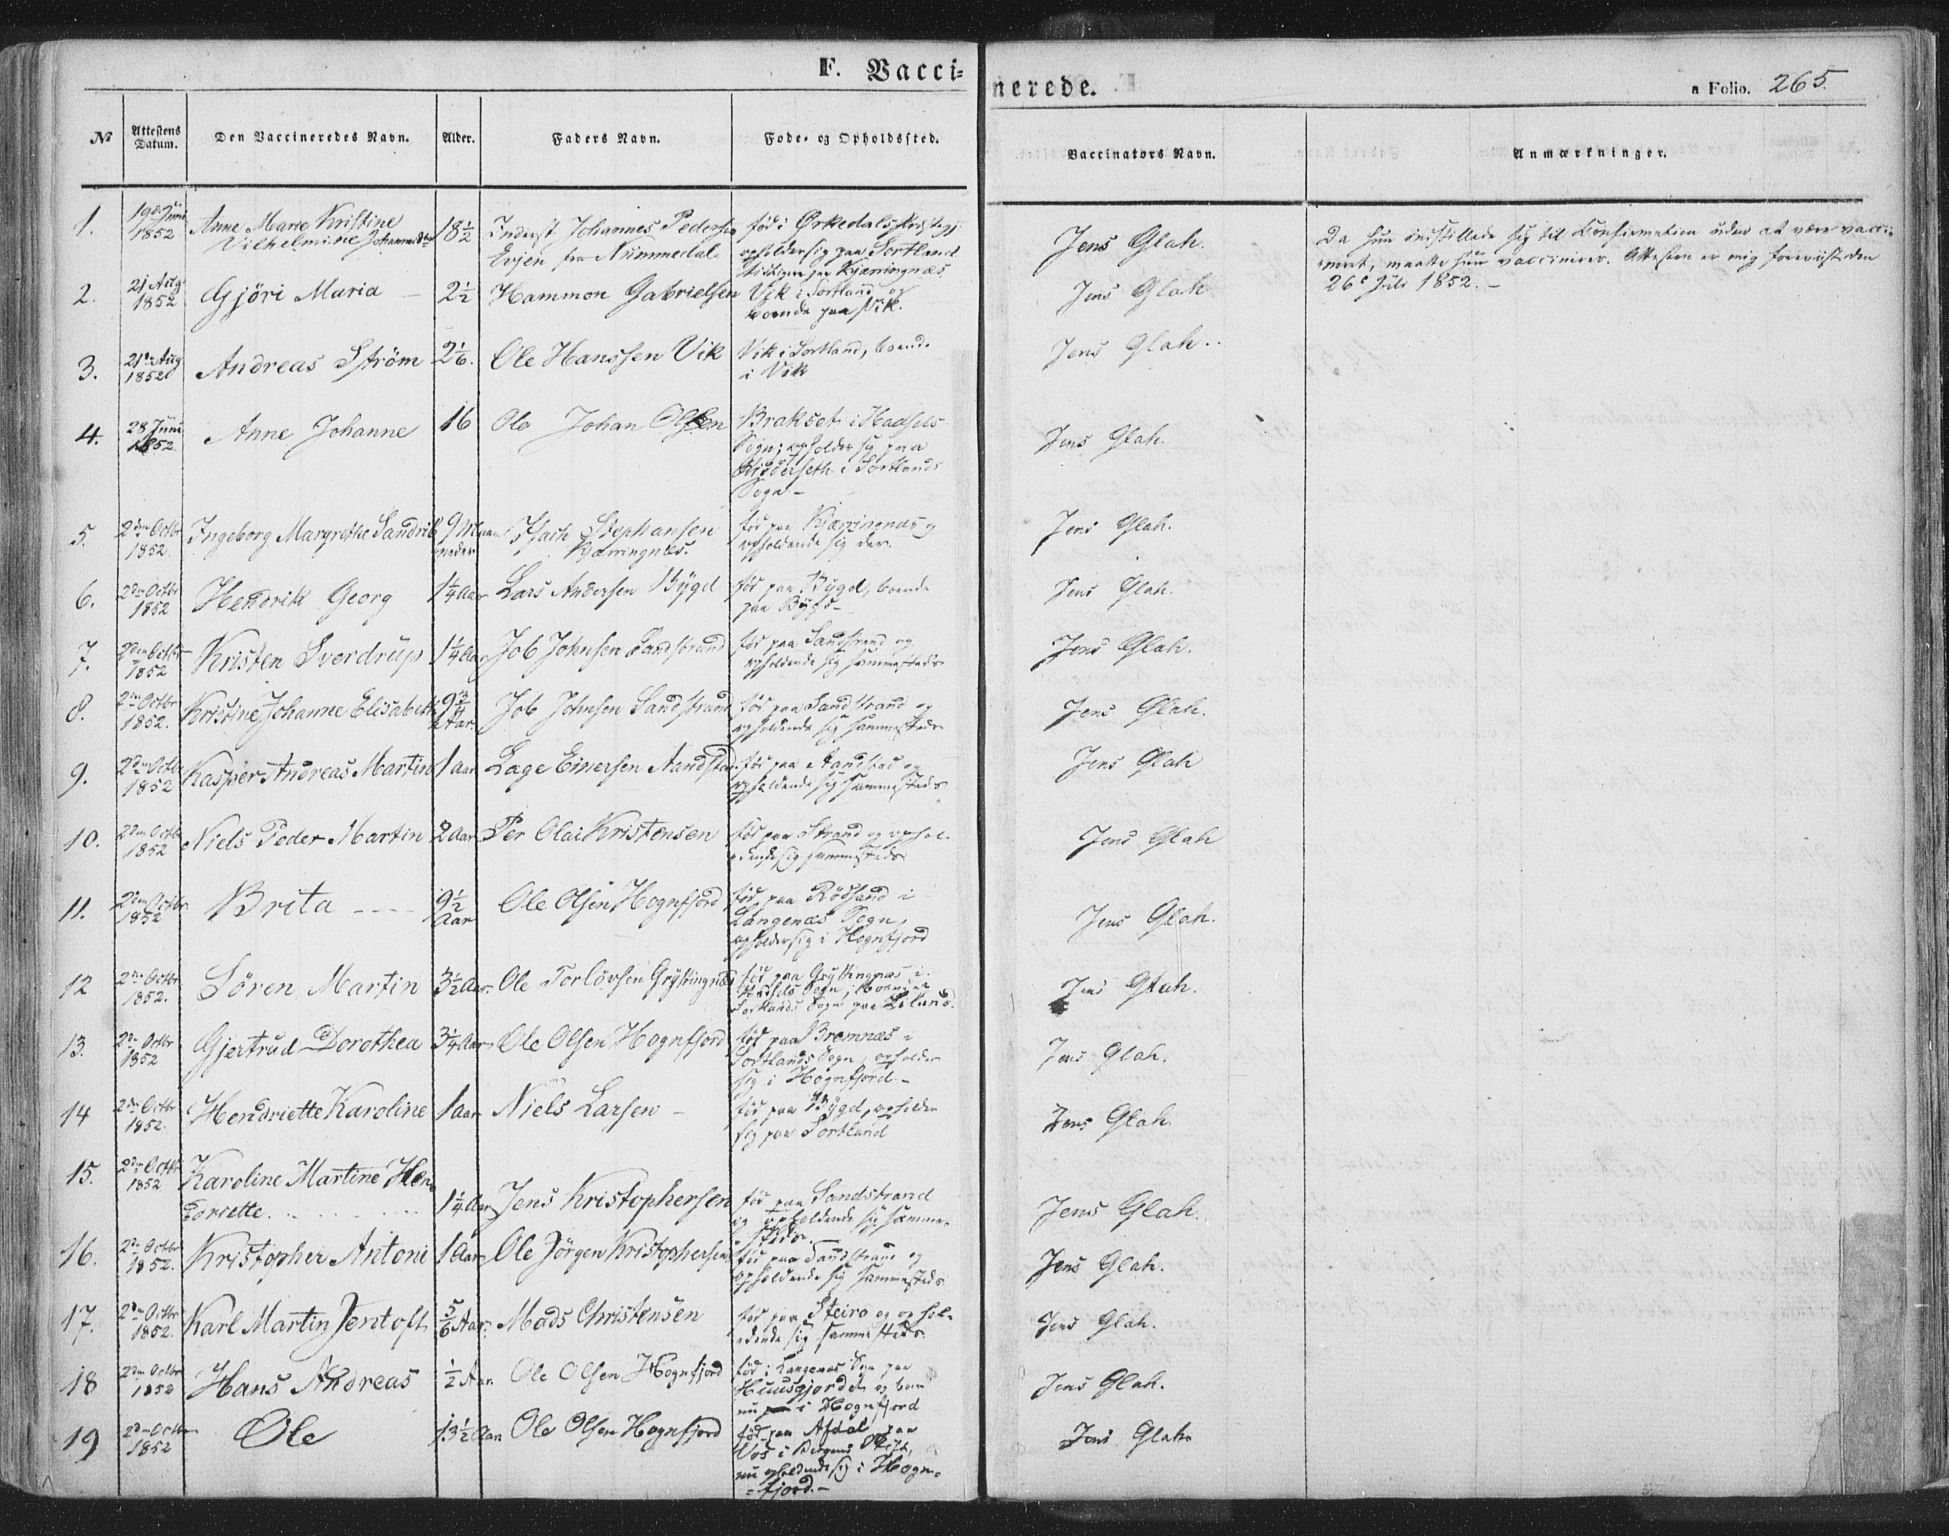 F. Vacci=
nerede.
a Folio. 265.
№ Attestens Datum. Den Vaccineredes Navn. Alder. Faders Navn. Føde- og Opholdssted. Vaccinators Navn. Anmærkninger.
1. 19de Juni 1852 Anne Marie Kristine Vilhelmine Johannesdtr 18½ Inderst Johannes Pedersen Evjen fra Nummedal. fød i Ørkedals Præstegj opholder sig paa Sortland Kjærringnæs Jens Glah. Da hun indstillede sig til Confirmation uden at være vacci-
neret, maatte hun vaccineres. Attesten er mig foreviist den
26de Juli 1852. –
2. 21 Aug 1852 Gjöri Maria – 2½ Hammon Gabrielsen Vik i Sortland og boende paa Vik. Jens Glah
3. 21de Aug 1852 Andreas Ström 2⅙. Ole Hanssen Vik Vik i Sortland, boende i Vik Jens Glah.
4. 28 Juni 1852 Anne Johanne 16 Ole Johan Olsen Brakset i Hadsels Sogn; opholder sig paa i Sortlands Sogn – Jens Glah.
5. 2den Octbr 1852. Ingeborg Margrethe Sandvik 9 Maaneder Isach Stephansen Kjærringnæs. fød paa Kjærringnæs og opholdende sig der. Jens Glah.
6. 2den Octbr 1852 Hendrik Georg 1¼ Aar Lars Andersen Bÿgd fød paa Bÿgd, boende paa Bÿgd – Jens Glah.
7. 2den Octbr 1852 Kristen Sverdrup 1¼ Aar Job Johnsen Sandstrand fød paa Sandstrand og opholdende sig sammesteds Jens Glah.
8. 2den Octbr 1852. Kristine Johanne Elisabeth 9¾ Aar. Job Johnsen Sandstrand fød paa Sandstrand og opholdende sig sammesteds Jens Glah.
9. 2den Octbr 1852 Kasper Andreas Martin 1 Aar Lage Einersen Aandstad. fød paa Aandstad og opholdende sig sammesteds Jens Glah
10. 2den Octbr 1852 Niels Peder Martin 2 Aar Per Olai Kristensen fød paa Strand og ophol-
dende sig sammesteds. Jens Glah
11. 2den Octbr 1852 Brita – – – 9½ Aar Ole Olsen Hognfjord fød paa Rödsand i Langenæs Sogn, opholder sig i Hognfjord Jens Glah.
12 2den Octbr 1852. Sören Martin 3½ Aar. Ole Torlövsen Gryttingnæs fød paa Gryttingnæs i Hadsels Sogn, boende i Sortlands Sogn paa Liland. Jens Glah.
13. 2den Octbr 1852 Gjertrud Dorothea 3¼ Aar Ole Olsen Hognfjord fød paa Bremnæs i Sortlands Sogn, opholder sig i Hognfjord. – Jens Glah.
14 2den Octbr 1852. Hendriette Karoline 1 Aar Niels Larsen – fød paa Bÿgd, opholder sig paa Sortland Jens Glah.
15. 2den Octbr 1852 Karoline Martine Hen-
driette. 1¼ Aar Jens Kristophersen fød paa Sandstrand og opholdende sig samme-
steds. – Jens Glah.
16. 2den Octbr 1852. Kristopher Antoni 1 Aar Ole Jörgen Kristophersen fød paa Sandstrand og opholdende sig sammesteds Jens Glah.
17. 2den Octbr 1852. Karl Martin Jentoft ⅚ Aar. Mads Christensen fød paa Steiro og ophol-
dende sig sammesteds. Jens Glah.
18 2den Octbr 1852 Hans Andreas ½ Aar Ole Olsen Hognfjord fød i Langenæs Sogn paa og boer nu i Hognfjord Jens Glah.
19 2den Octbr 1852 Ole 13½ Aar Ole Olsen Hognfjord fød paa Afdal paa Vos i Bergens Stift, nu opholdende sig i Hogn-
fjord. – Jens Glah